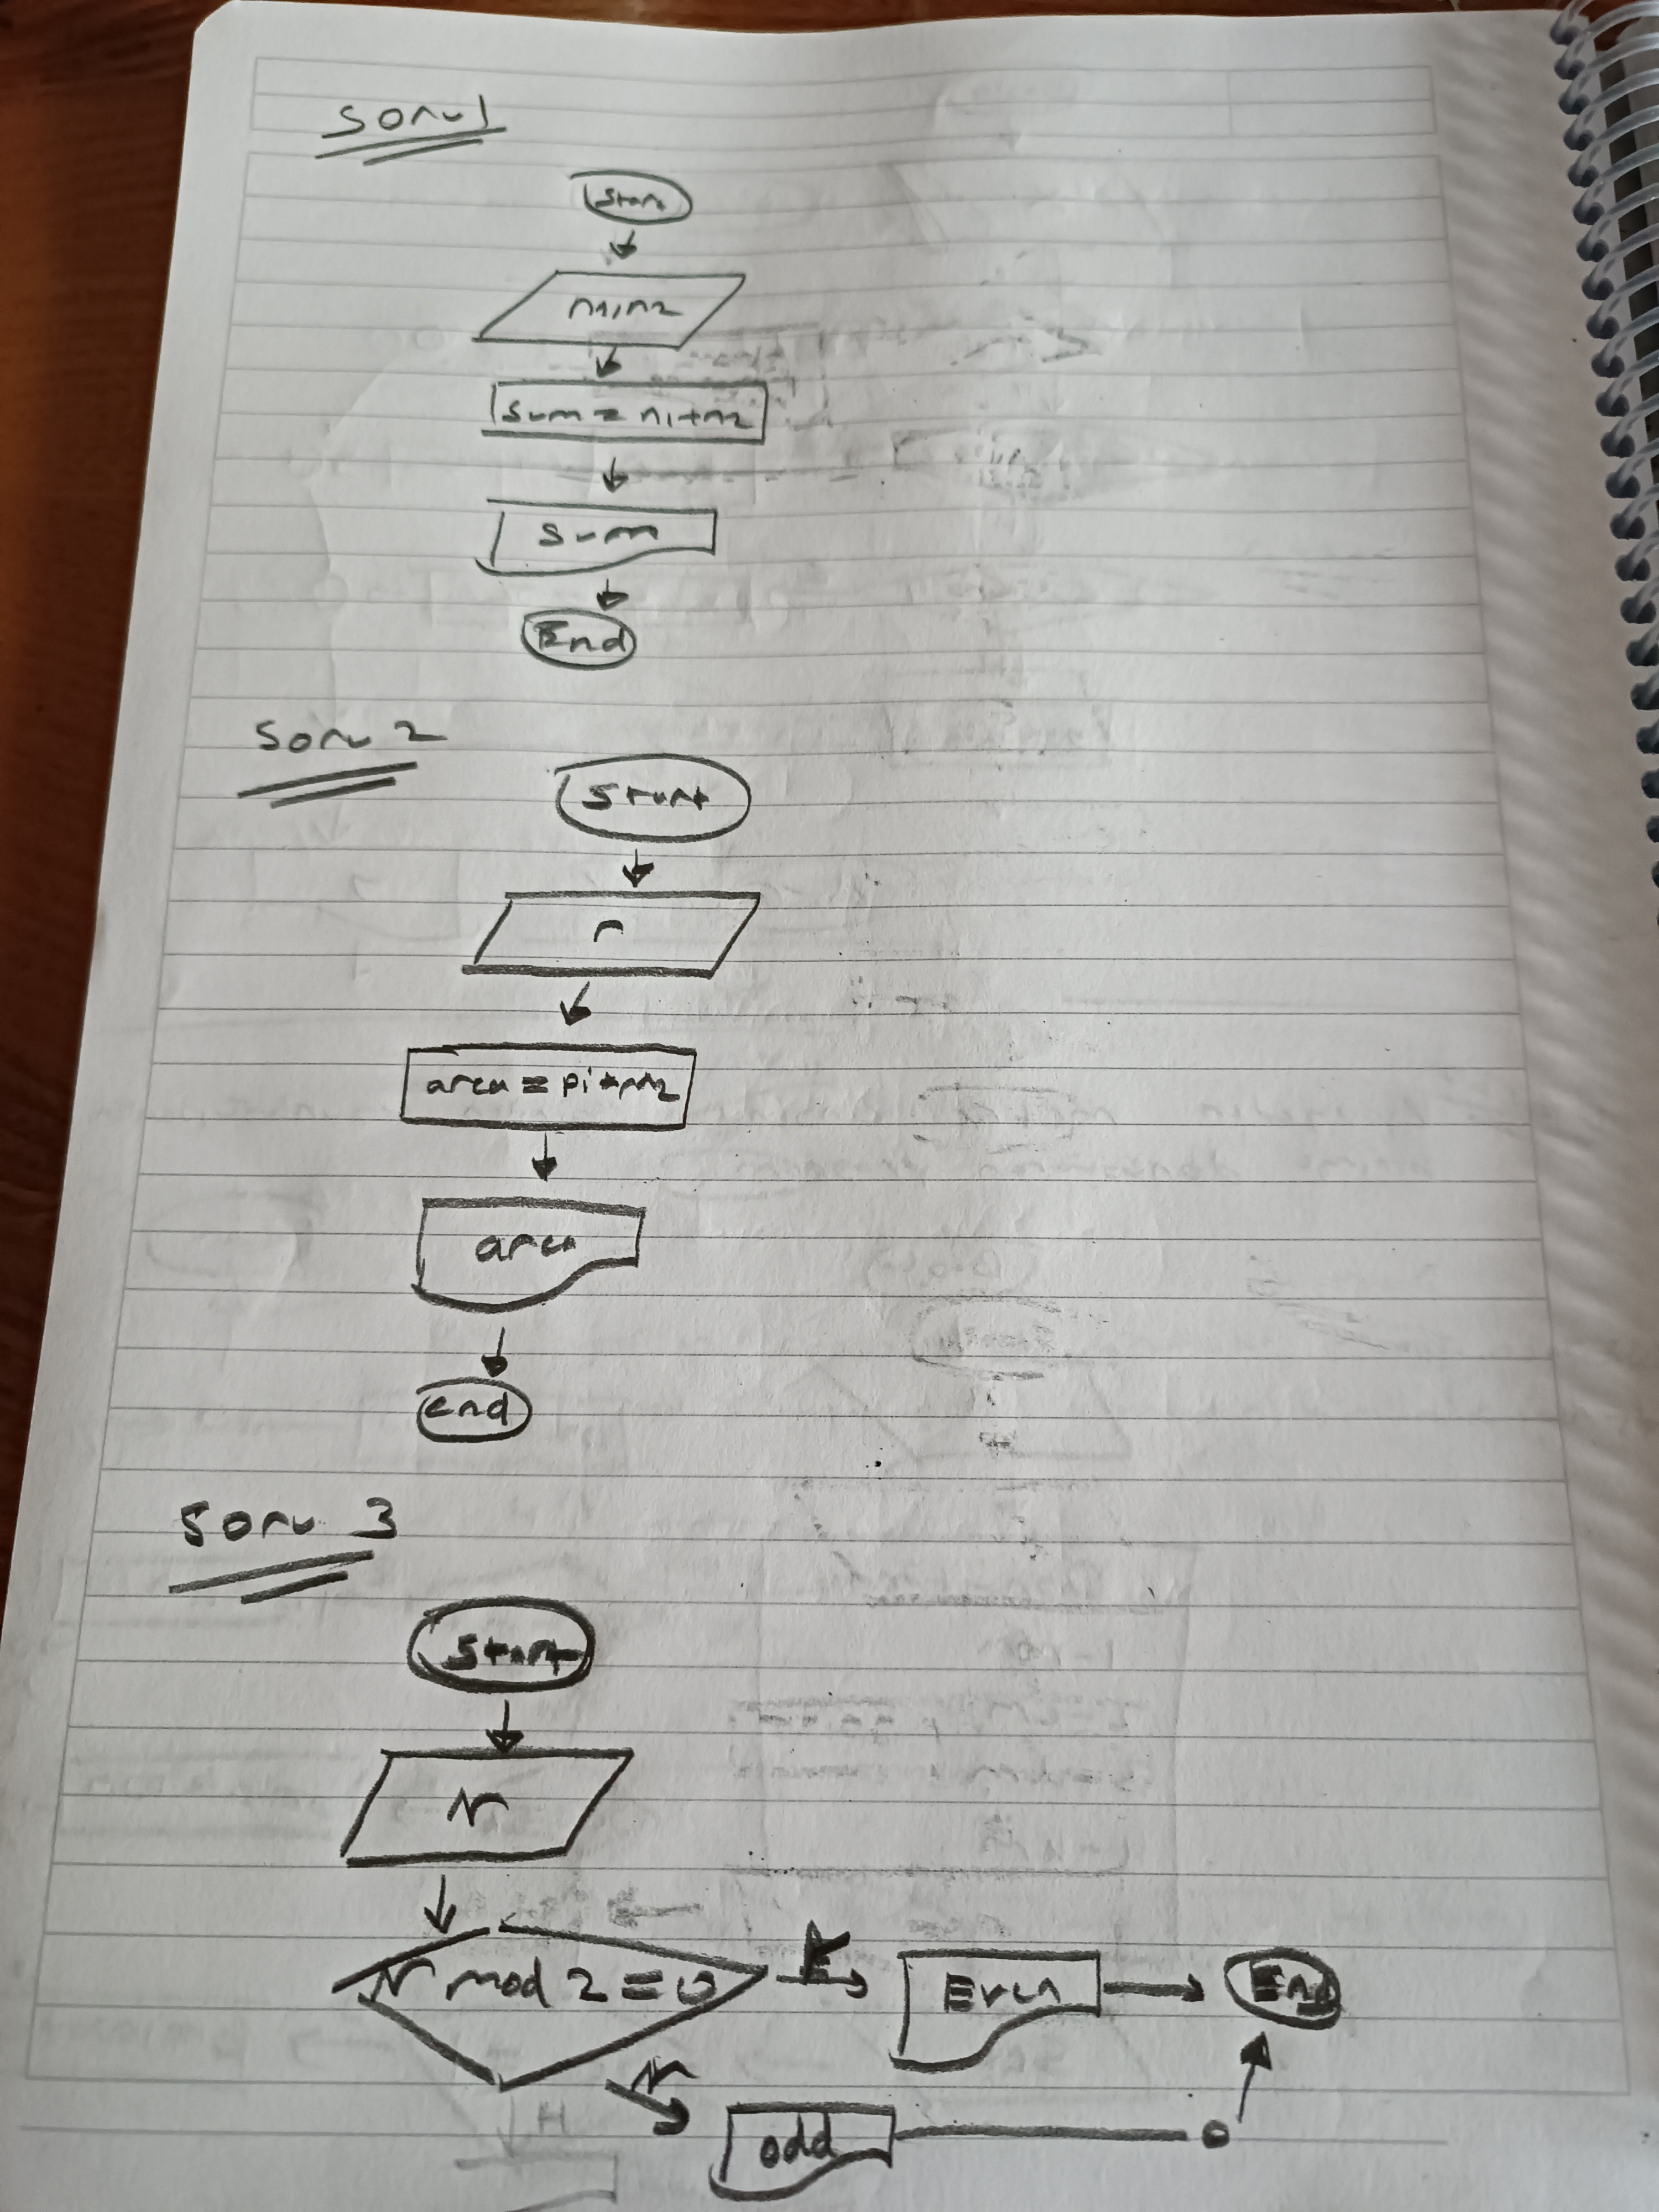 Soru 1
Start
n1, n2
Sum = n1+n2
Sum
End
Soru 2
Start
r
area = pi*r^2
area
end
Soru 3
Start
N
N mod 2 = 0
E
Even
End
N
odd